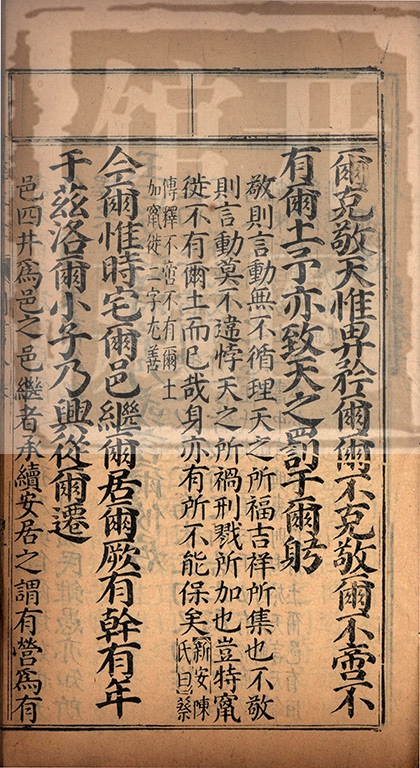 爾克敬天惟畀矜爾爾不克敬爾不啻不
有爾土予亦致天之罰于爾躬
敬則言動無不循理天之所福吉祥所集也不敬
則言動莫不違悖天之所禍刑戮所加也豈特竄
徙不有爾土而已哉身亦有所不能保矣新安陳氏曰蔡
傳釋不啻不有爾土
加竄徙二字尤善
今爾惟時宅爾邑繼爾居爾厥有幹有年
于茲洛爾小子乃興從爾遷
邑四井爲邑之邑繼者承續安居之謂有營爲有